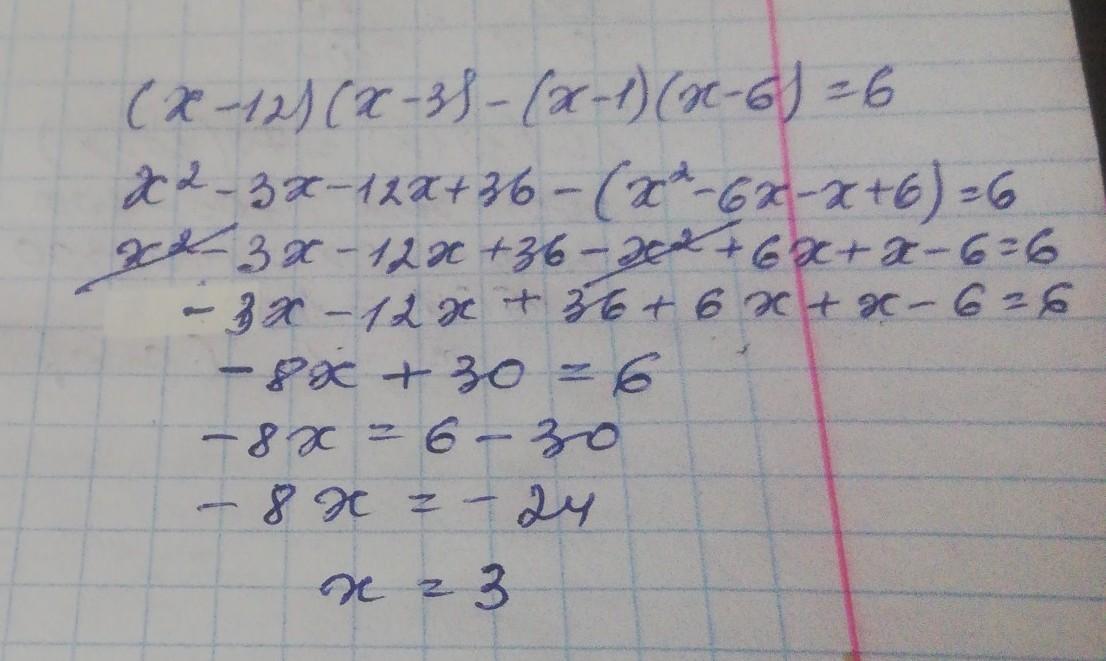 (x-12)(x-3)-(x-1)(x-6)=6
x²-3x-12x+36-(x²-6x-x+6)=6
x²-3x-12x+36-x²+6x+x-6=6
-3x-12x+36+6x+x-6=6
-8x+30=6
-8x=6-30
-8x=-24
x=3